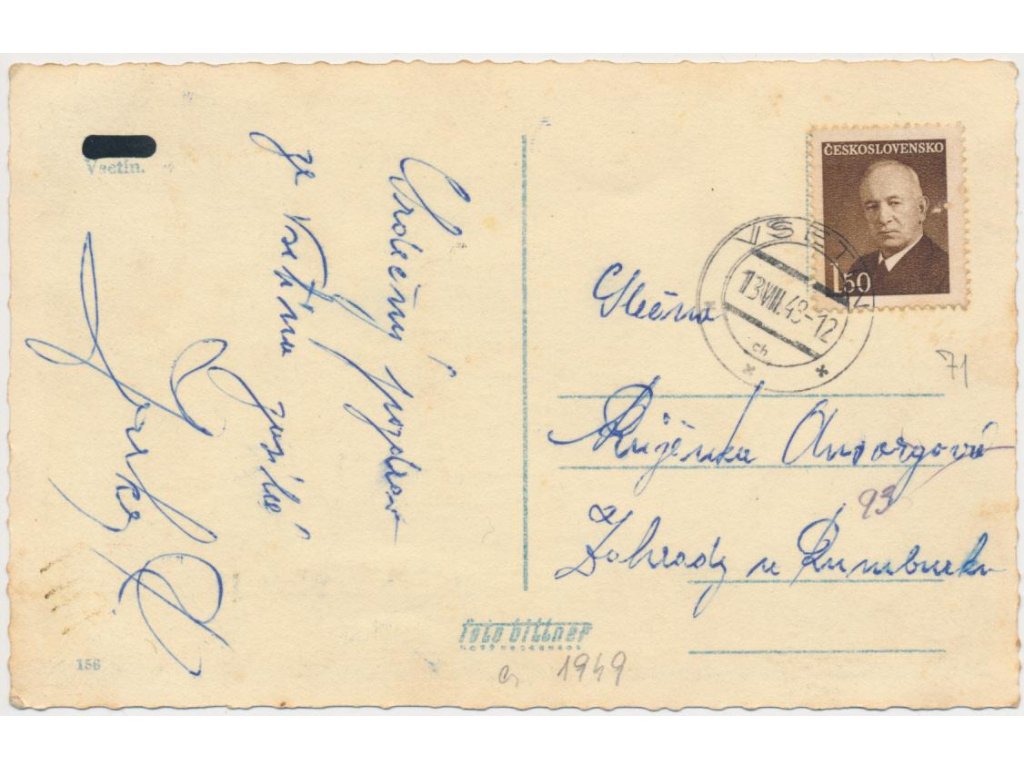 Vsetín.
Srdečný pozdrav
ze Vsetína zasílá
Jarka
ČESKOSLOVENSKO
1.50
VSETÍN
13.VIII.48-12
ch
Slečna
Růženka
93
Zahrady u Rumburku
71
foto bittner
156
1949